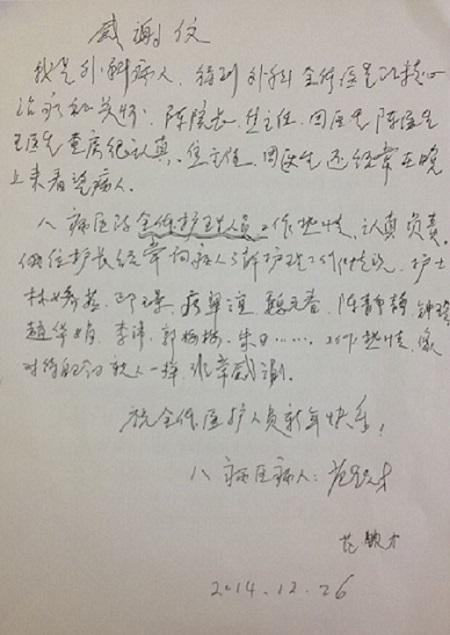 感谢信
我是外科病人，得到外科全体医生的精心
治疗和关怀，陈院长 焦主任，田医生 陈医生
王医生查房很认真。焦主任，田医生还经常在晚
上来看望病人。
八病区的全体护理人员工作热情，认真负责。
俩位护长经常向病人了解护理工作情况，护士
林 陈静静 钟
赵华娟，李 郭梅梅，朱 …… 工作热情，像
对待自己亲人一样，非常感谢。
祝全体医护人员新年快乐！
八病区病人：范 才
范 才
2014.12.26